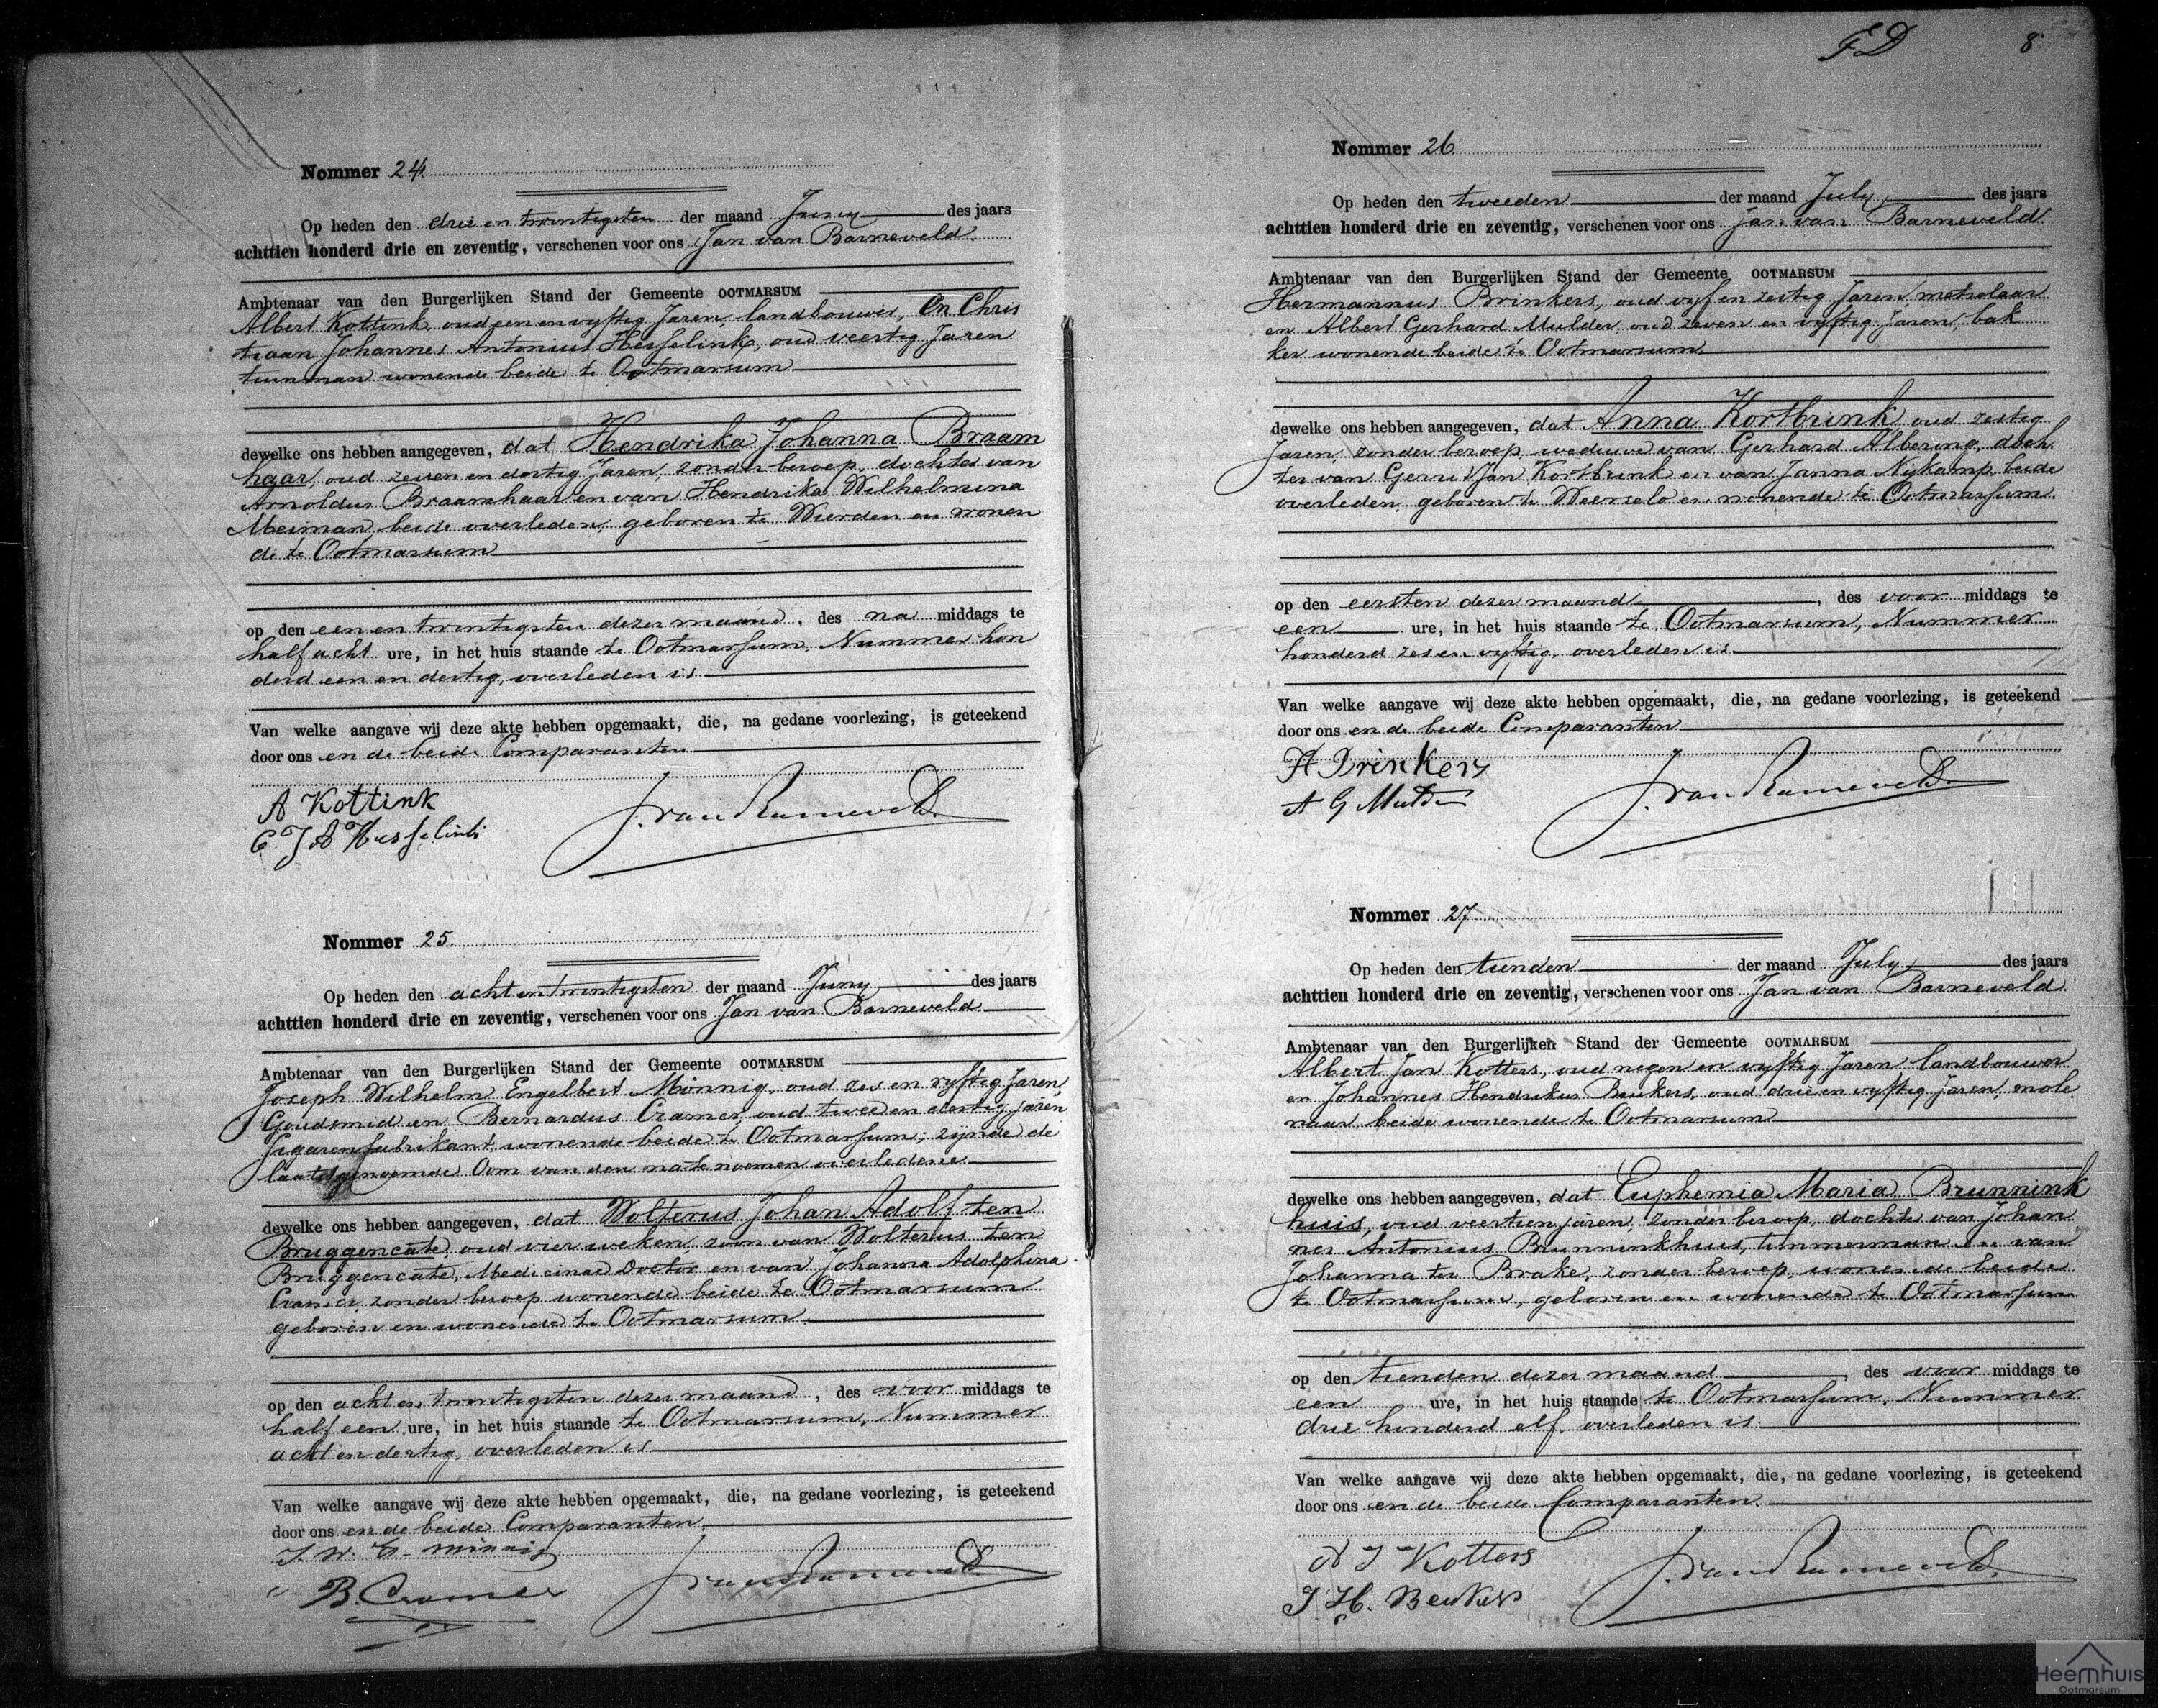 Nommer 24.
Op heden den drie en twintigsten der maand Juny des jaars
achttien honderd drie en zeventig, verschenen voor ons Jan van Barneveld
Ambtenaar van den Burgerlijken Stand der Gemeente OOTMARSUM
Albert Kottink, oud een en vyftig Jaren, landbouwer, En Chris
tiaan Johannes Antonius Hesselink, oud veertig Jaren
tuinman wonende beide te Ootmarsum
dewelke ons hebben aangegeven, dat Hendrika Johanna Braam
haar, oud zeven en dertig Jaren, zonder beroep, dochter van
Arnoldus Braamhaar en van Hendrika Wilhelmina
Meiman beide overleden, geboren te Wierden en wonen
de te Ootmarsum
op den een en twintigsten dezer maand, des na middags te
half acht ure, in het huis staande te Ootmarsum, Nummer hon
derd een en dertig, overleden is
Van welke aangave wij deze akte hebben opgemaakt, die, na gedane voorlezing, is geteekend
door ons en de beide Comparanten
A Kottink
C J A Hesselink
J. van Barneveld
Nommer 25.
Op heden den acht en twintigsten der maand Juny des jaars
achttien honderd drie en zeventig, verschenen voor ons Jan van Barneveld
Ambtenaar van den Burgerlijken Stand der Gemeente OOTMARSUM
Joseph Wilhelm Engelbert Mönnig, oud zes en vyftig Jaren
Goudsmid en Bernardus Cramer, oud twee en dertig jaren
sigarenfabrikant, wonende beide te Ootmarsum; zijnde de
laatstgenoemde Oom van den na te noemen overledene
dewelke ons hebben aangegeven, dat Wolterus Johan Adolf ten
Bruggencate, oud vier weken, zoon van Wolterus ten
Bruggencate, Medicinae Doctor en van Johanna Adolphina
Cramer, zonder beroep wonende beide te Ootmarsum
geboren en wonende te Ootmarsum
op den acht en twintigsten dezer maand, des voor middags te
half een ure, in het huis staande te Ootmarsum, Nummer
acht en dertig, overleden is
Van welke aangave wij deze akte hebben opgemaakt, die, na gedane voorlezing, is geteekend
door ons en de beide Comparanten
J. W. E. Minnig
B. Cramer
J. van Barneveld
8
Nommer 26
Op heden den tweeden der maand July des jaars
achttien honderd drie en zeventig, verschenen voor ons Jan van Barneveld
Ambtenaar van den Burgerlijken Stand der Gemeente OOTMARSUM
Hermannus Brinkers, oud vyf en zestig Jaren, metselaar
en Albert Gerhard Mulder, oud zeven en vyftig Jaren, bak
ker wonende beide te Ootmarsum
dewelke ons hebben aangegeven, dat Anna Kortbrink oud zestig
Jaren, zonder beroep, weduwe van Gerhard Albering, doch
ter van Gerrit Jan Kortbrink en van Janna Nykamp, beide
overleden, geboren te Weerselo en wonende te Ootmarsum
op den eersten dezer maand, des voor middags te
een ure, in het huis staande te Ootmarsum, Nummer
honderd zes en vyftig, overleden is
Van welke aangave wij deze akte hebben opgemaakt, die, na gedane voorlezing, is geteekend
door ons en de beide Comparanten
H Brinkers
A G Mulder
J. van Barneveld
Nommer 27
Op heden den tienden der maand July des jaars
achttien honderd drie en zeventig, verschenen voor ons Jan van Barneveld
Ambtenaar van den Burgerlijken Stand der Gemeente OOTMARSUM
Albert Jan Kotters, oud negen en vyftig Jaren landbouwer
en Johannes Hendrikus Beukers, oud drie en vyftig jaren, mole
naar beide wonende te Ootmarsum
dewelke ons hebben aangegeven, dat Euphemia Maria Brunnink
huis, oud veertien jaren, zonder beroep, dochter van Johan
nes Antonius Brunninkhuis, timmerman en van
Johanna ter Brake, zonder beroep, wonende beide
te Ootmarsum, geboren en wonende te Ootmarsum
op den tienden dezer maand, des voor middags te
een ure, in het huis staande te Ootmarsum, Nummer
drie honderd elf, overleden is
Van welke aangave wij deze akte hebben opgemaakt, die, na gedane voorlezing, is geteekend
door ons en de beide Comparanten.
A J Kotters
J. H. Beukers
J. van Barneveld
Heemhuis
Ootmarsum